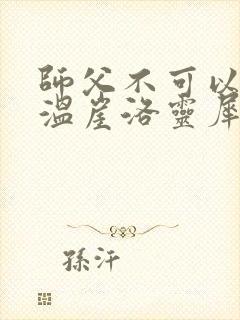 師父不可以
溫崖洛靈犀
孫汗